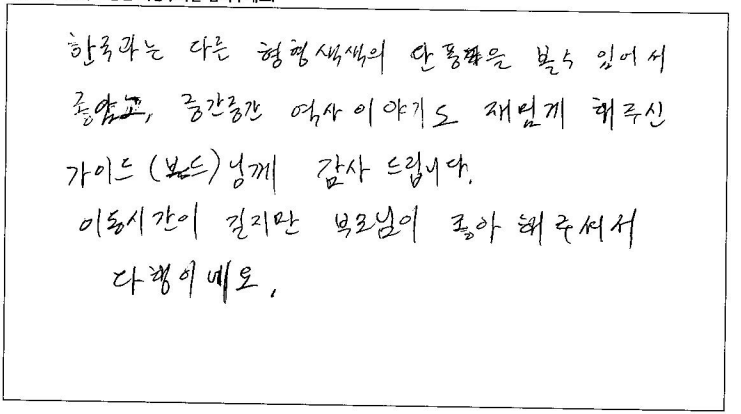 한국과는 다른 형형색색의 단풍을 볼수 있어서
좋았고, 중간중간 역사이야기도 재밌게 해주신
가이드 (보드)님께 감사 드립니다.
이동시간이 길지만 부모님이 좋아 해주셔서
다행이네요.